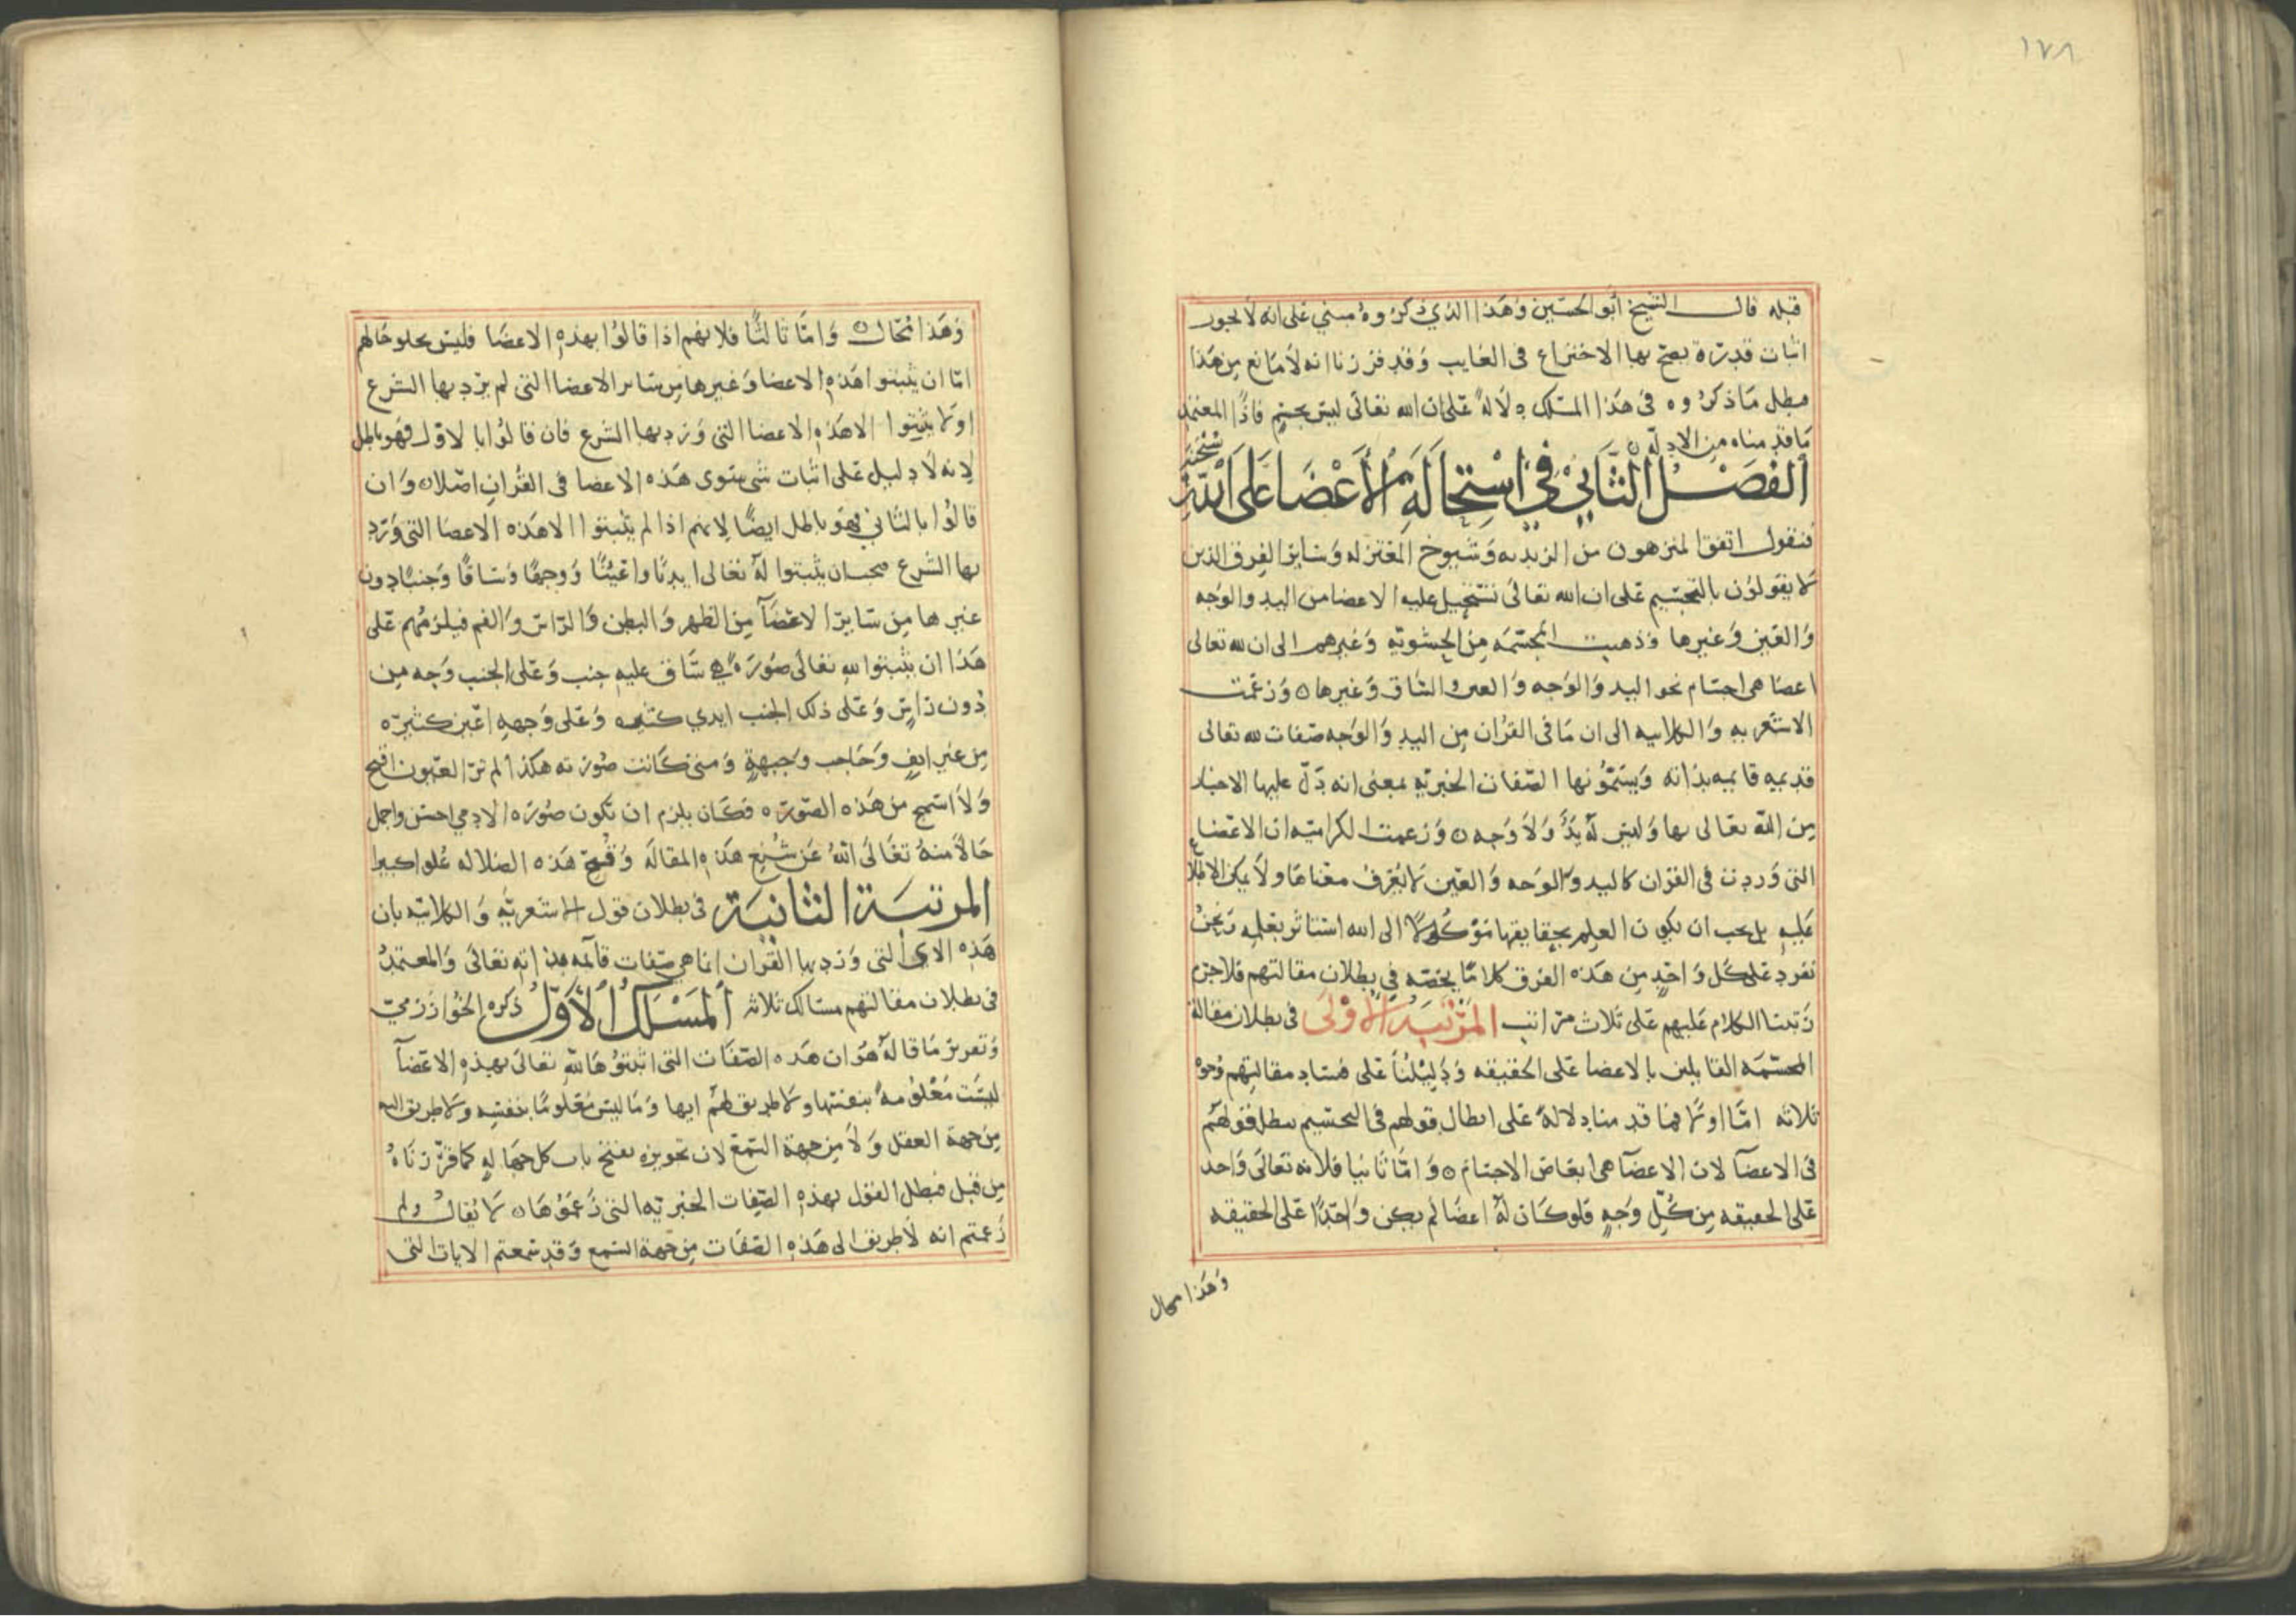 ١٧٨
قبله قال الشيخ ابو الحسين وهذا الذي ذكروه مبني على انه لا يجوز
اثبات قدرة يصح بها الاختراع في الغايب وقد قررنا انه لا مانع من هذا
فبطل ما ذكروه في هذا المسلك دلالة على ان الله تعالى ليس بجسم فاذا المعتمد
ما قدمناه من الادلة
الفصل الثاني في استحالة الأعضا على الله
فنقول اتفق المنزهون من الزيديه وشيوخ المعتزله وساير الفرق الذين
لا يقولون بالتجسيم على ان الله تعالى تستحيل عليه الاعضا من اليد والوجه
والعين وغيرها وذهبت المجسمه من الحشويه وغيرهم الى ان لله تعالى
اعضا هي اجسام نحو اليد والوجه والعين والساق وغيرها ۞ وزعمت
الاشعريه والكلابيه الى ان ما في القران من اليد والوجه صفات لله تعالى
قديمه قايمه بذاته ويسمونها الصفات الخبريه بمعنى انه دل عليها الاخبار
من الله تعالى بها وليس له يد ولا وجه ۞ وزعمت الكراميه ان الاعضا
التي وردت في القران كاليد والوجه والعين لا يعرف معناها ولا يمكن الاطلاع
عليه بل يجب ان يكون العلم بحقايقها موكولا الى الله استاثر بعلمه ونحن
نفرد على كل واحد من هذه الفرق كلاما يخصه في بطلان مقالتهم فلا جرم
رتبنا الكلام عليهم على ثلاث مراتب المرتبة الاولى في بطلان مقالة
المجسمه القايلين بالاعضا على الحقيقه ودليلنا على فساد مقالتهم وجوه
ثلاثه اما اولا فما قدمنا دلالة على ابطال قولهم في التجسيم يبطل قولهم
في الاعضآ لان الاعضآ هي ابعاض الاجسام ۞ واما ثانيا فلانه تعالى واحد
على الحقيقه من كل وجه فلو كان له اعضا لم يكن واحدا على الحقيقه
وهذا محال
وهذا محال ۞ واما ثالثا فلانهم اذا قالوا بهذه الاعضا فليس يخلو حالهم
اما ان يثبتوا هذه الاعضا وغيرها من ساير الاعضا التي لم يرد بها الشرع
او لا يثبتوا الا هذه الاعضا التي ورد بها الشرع فان قالوا بالاول فهو باطل
لانه لا دليل على اثبات شي سوى هذه الاعضا في القران اصلا ۞ وان
قالوا بالثاني فهو باطل ايضا لانهم اذا لم يثبتوا الا هذه الاعضا التي ورد
بها الشرع فيجب ان يثبتوا له تعالى ايديا واعينا ووجها وساقا وجنبا دون
غيرها من ساير الاعضآ من الظهر والبطن والراس والفم فيلزمهم على
هذا ان يثبتوا لله تعالى صورة هي ساق عليه جنب وعلى الجنب وجه من
دون راس وعلى ذلك الجنب ايدي كثيره وعلى وجهه اعين كثيره
من غير انف وحاجب وجبهة ومتى كانت صورته هكذا لم تر العيون اقبح
ولا اسمج من هذه الصوره فكان يلزم ان تكون صوره الادمي احسن واجمل
حالا منه تعالى الله عن شنيع هذه المقاله وقبح هذه الضلاله علوا كبيرا
المرتبة الثانية في بطلان قول الاشعريه والكلابيه بان
هذه الاي التي ورد بها القران انما هي صفات قآئمه بذاته تعالى والمعتمد
في بطلان مقالتهم مسالك ثلاثه المسلك الأول ذكره الخوارزمي
وتعرير ما قاله هو ان هذه الصفات التي اثبتوها لله تعالى بهذه الاعضآ
ليست معلومة بنفسها ولا طريق لهم اليها وما ليس معلوما بنفسه ولا طريق اليه
من جهة العقل ولا من جهة السمع لان تجويزه يفتح باب كل جهاله كما قررناه
من قبل فبطل القول بهذه الصفات الخبريه التي زعموها ۞ لا يقال ولم
زعمتم انه لا طريق الى هذه الصفات من جهة السمع وقد سمعتم الايات التي